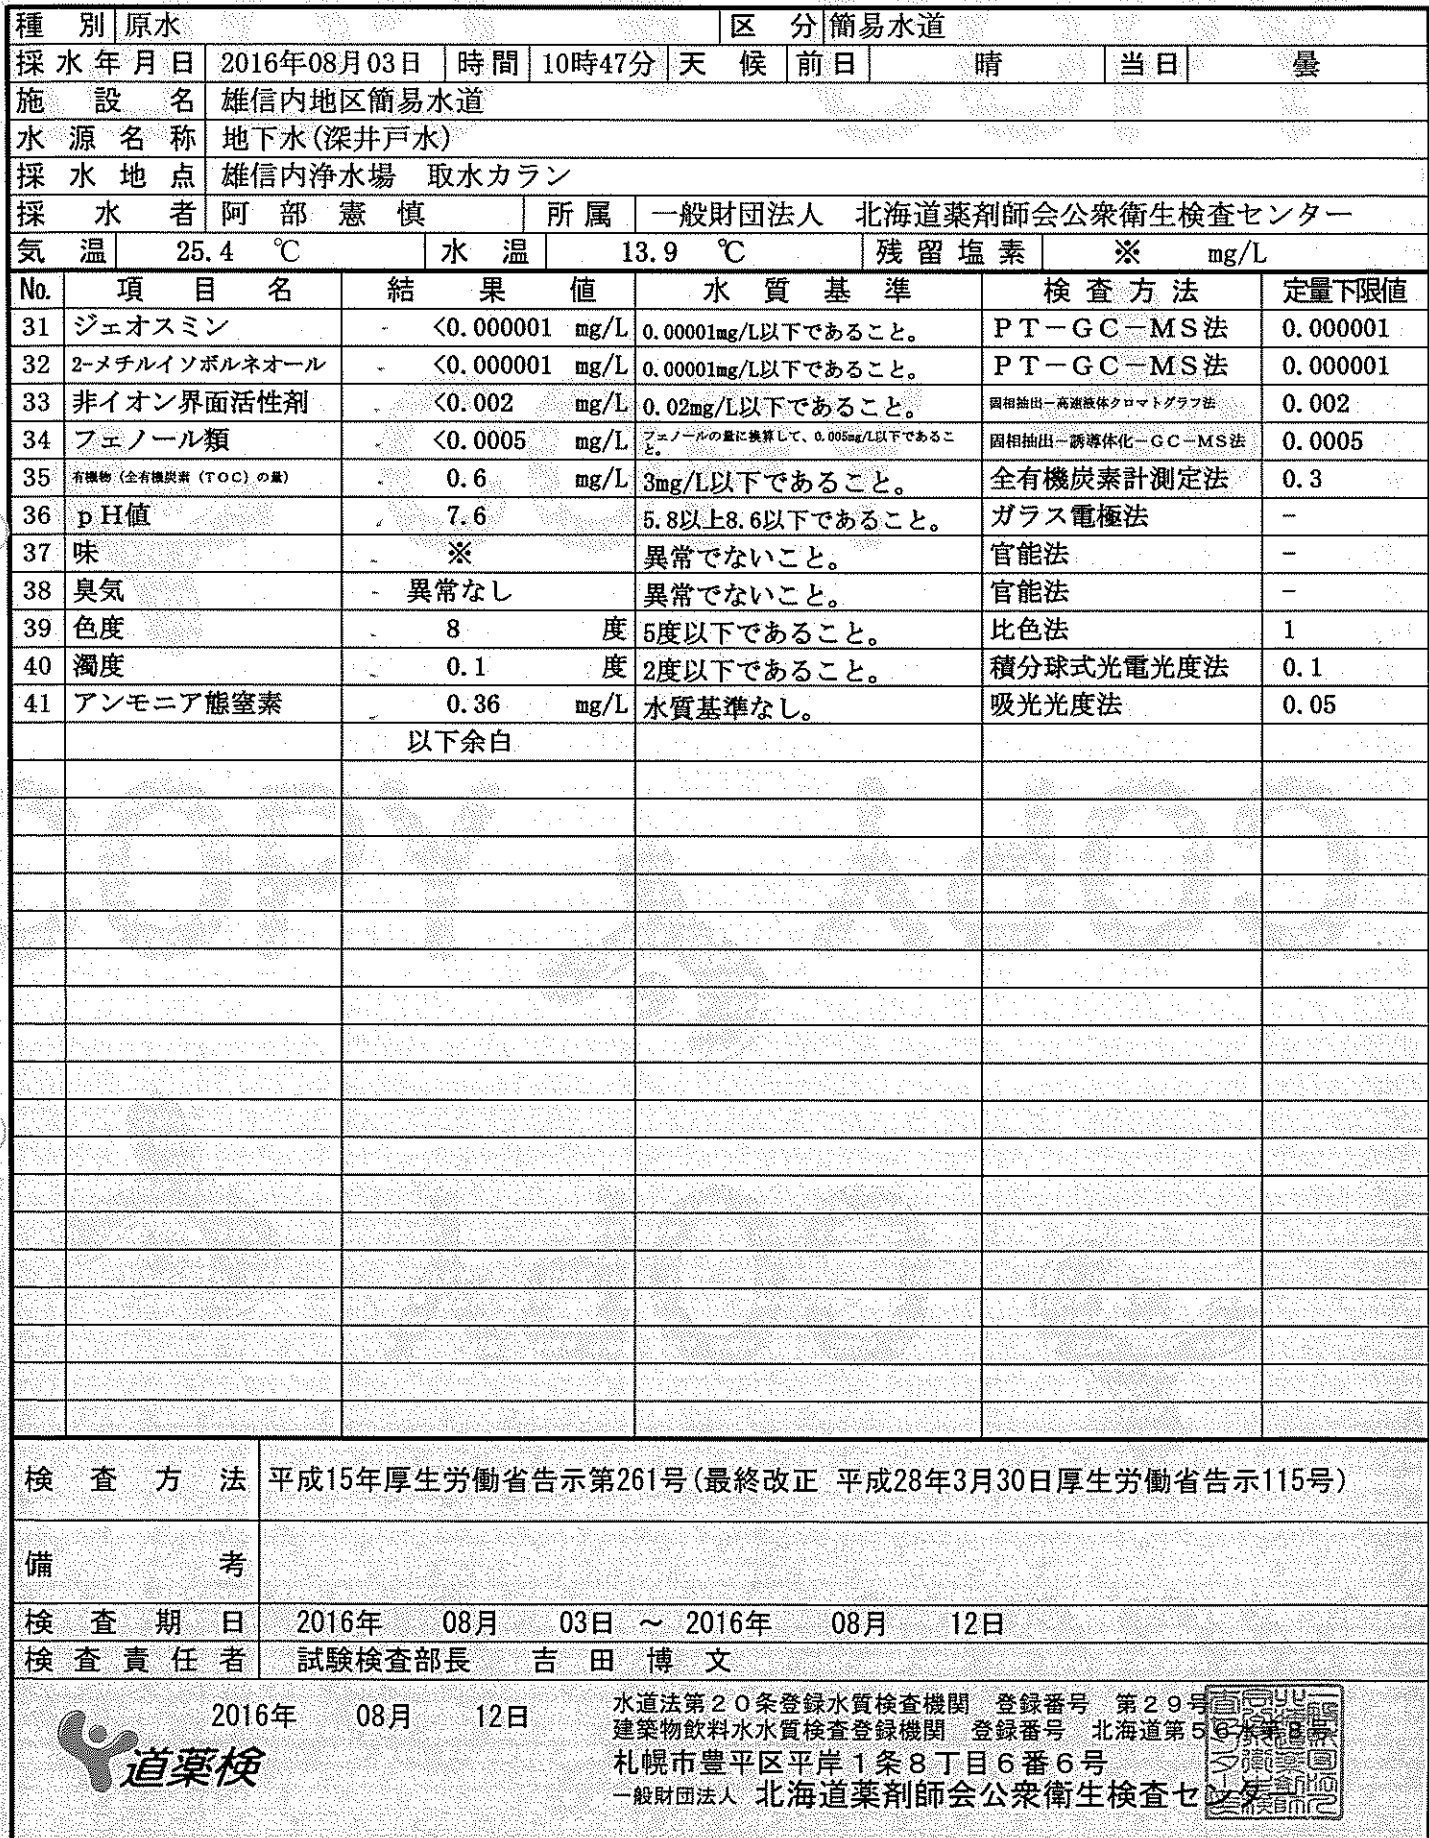 種 別 原水 区 分 簡易水道
採水年月日 2016年08月03日 時間 10時47分 天 候 前日 晴 当日 曇
施 設 名 雄信内地区簡易水道
水 源 名 称 地下水(深井戸水)
採 水 地 点 雄信内浄水場 取水カラン
採 水 者 阿 部 憲 慎 所属 一般財団法人 北海道薬剤師会公衆衛生検査センター
気 温 25.4 ℃ 水 温 13.9 ℃ 残留塩素 ※ mg/L
No. 項 目 名 結 果 値 水 質 基 準 検査方法 定量下限値
31 ジェオスミン <0.000001 mg/L 0.00001mg/L以下であること。 PT-GC-MS法 0.000001
32 2-メチルイソボルネオール <0.000001 mg/L 0.00001mg/L以下であること。 PT-GC-MS法 0.000001
33 非イオン界面活性剤 <0.002 mg/L 0.02mg/L以下であること。 固相抽出-高速液体クロマトグラフ法 0.002
34 フェノール類 <0.0005 mg/L フェノールの量に換算して、0.005mg/L以下であること。 固相抽出-誘導体化-GC-MS法 0.0005
35 有機物(全有機炭素(TOC)の量) 0.6 mg/L 3mg/L以下であること。 全有機炭素計測定法 0.3
36 pH値 7.6 5.8以上8.6以下であること。 ガラス電極法 -
37 味 ※ 異常でないこと。 官能法 -
38 臭気 異常なし 異常でないこと。 官能法 -
39 色度 8 度 5度以下であること。 比色法 1
40 濁度 0.1 度 2度以下であること。 積分球式光電光度法 0.1
41 アンモニア態窒素 0.36 mg/L 水質基準なし。 吸光光度法 0.05
以下余白
検 査 方 法 平成15年厚生労働省告示第261号(最終改正 平成28年3月30日厚生労働省告示115号)
備 考
検 査 期 日 2016年 08月 03日 ～ 2016年 08月 12日
検査責任者 試験検査部長 吉 田 博 文
2016年 08月 12日
道薬検
水道法第20条登録水質検査機関 登録番号 第29号
建築物飲料水水質検査登録機関 登録番号 北海道第56水第8号
札幌市豊平区平岸1条8丁目6番6号
一般財団法人 北海道薬剤師会公衆衛生検査センター